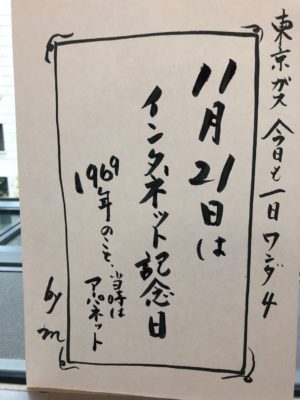 東京ガス 今日も一日ワンダ4
11月21日は
インタネット記念日
1969年のこと、当時は
アパネット
by m